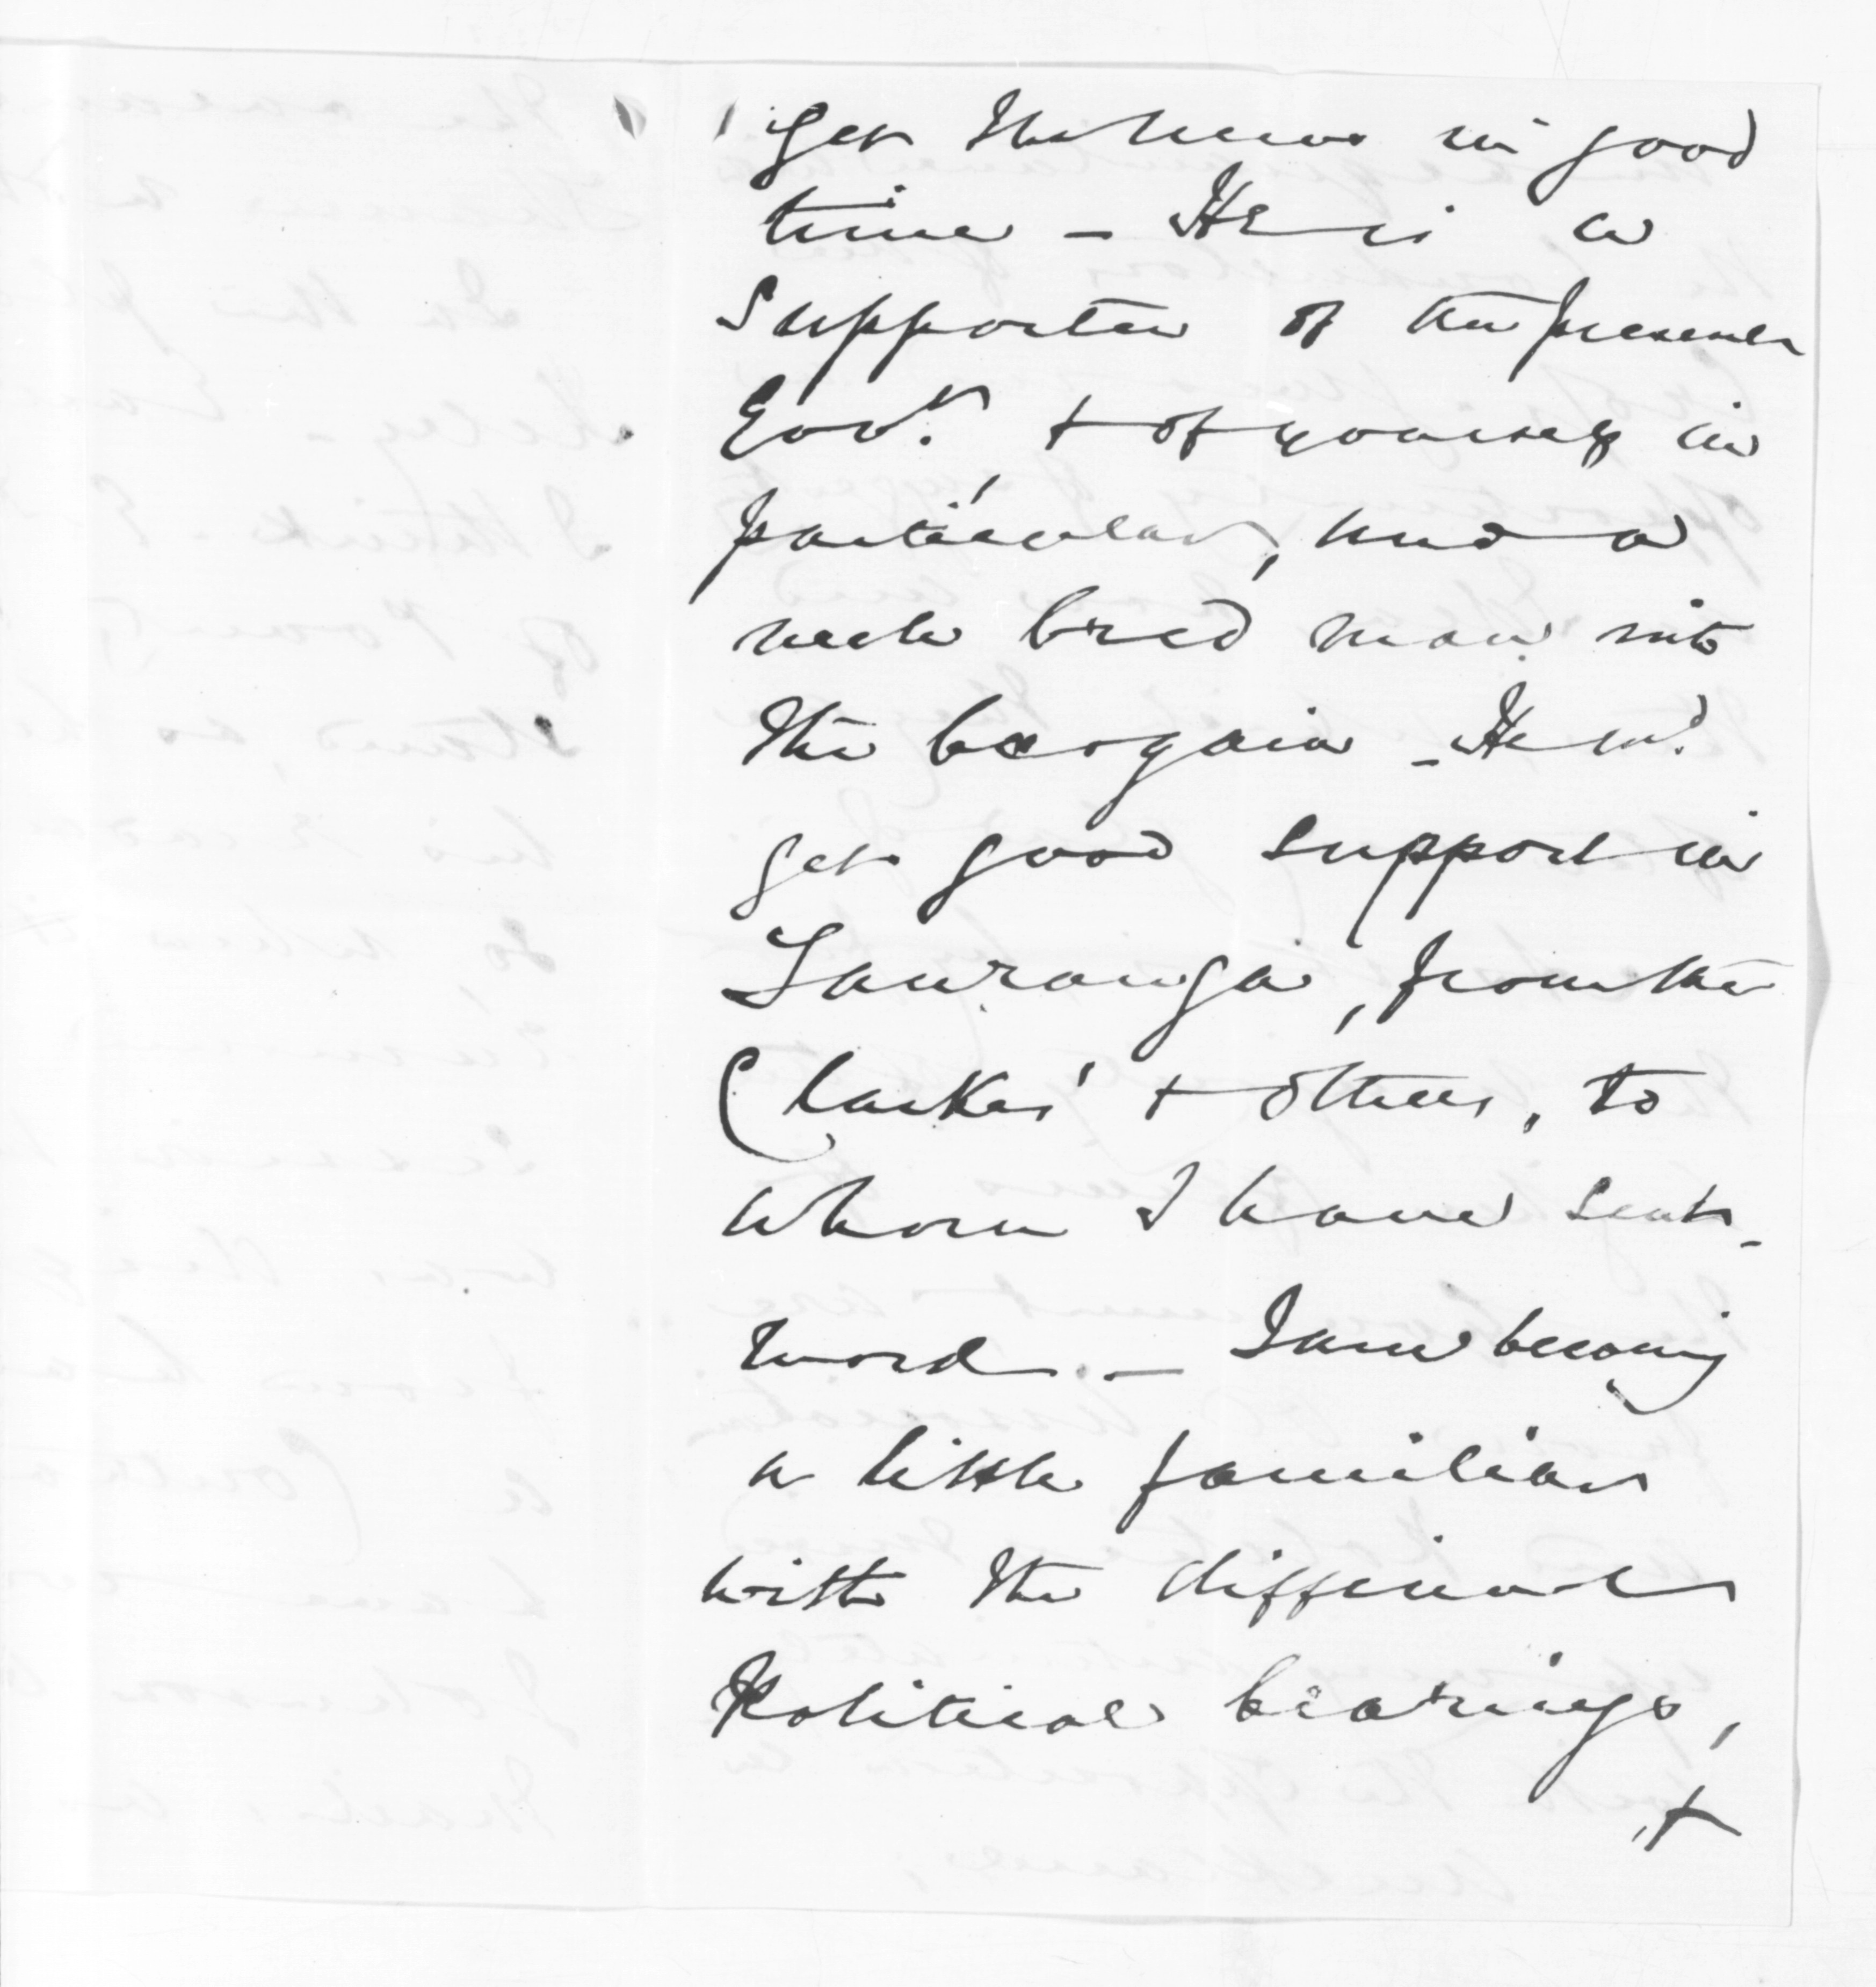 get the news in good
time – He is a
Supporter of the present
Govt. + of yourself in
particular, and a
well bred man into
the bargain – He wd.
get good support in
Tauranga, from the
Clarkes' + others, to
whom I have sent
word – I am becoming
a little familiar
with the different
Political bearings,
+